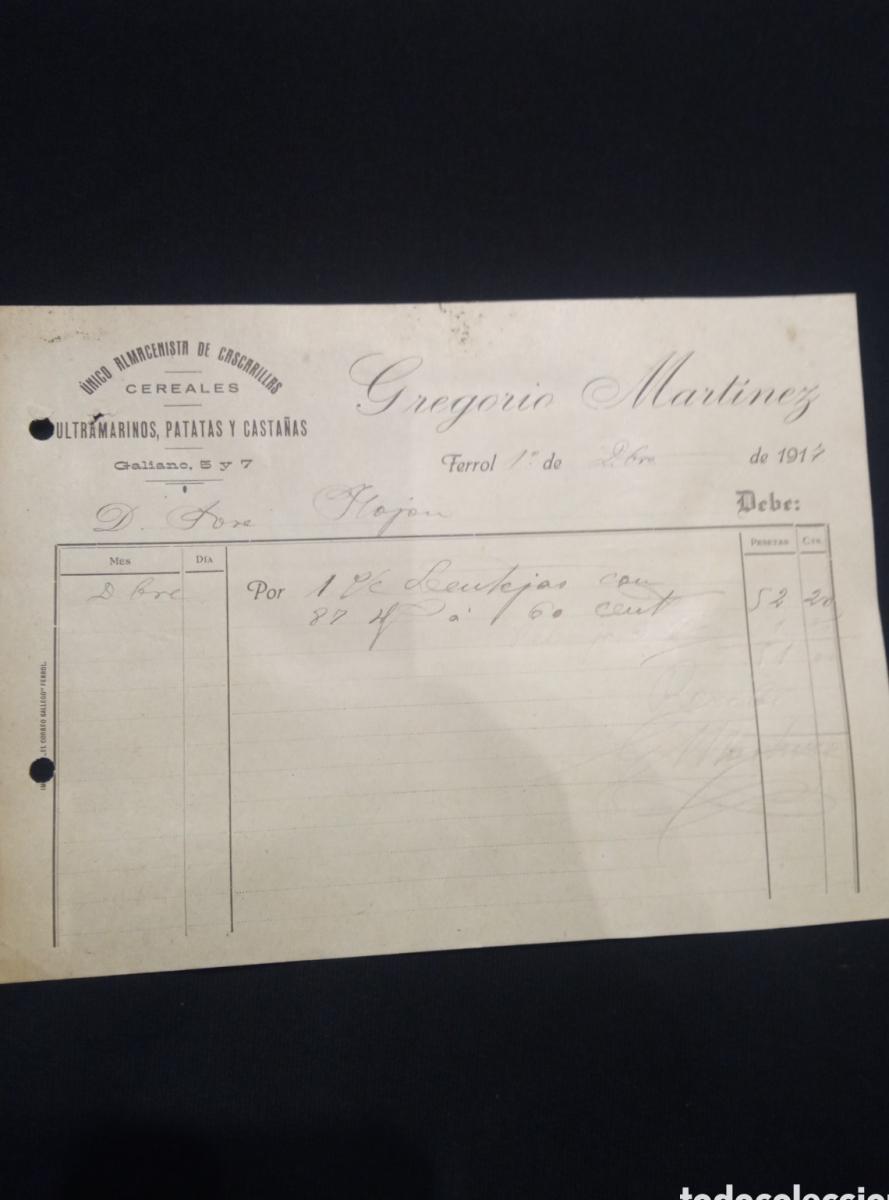 ÚNICO ALMACENISTA DE CASCARILLAS
CEREALES
ULTRAMARINOS, PATATAS Y CASTAÑAS
Galiano, 5 y 7
Gregorio Martínez
Ferrol 1º de Dbre de 191
D. Jose
Debe:
MES DÍA PESETAS CTS.
Dbre Por 1 s/c Lentejas con
87 K á 60 cent 52 20
51
G Martinez
EL CORREO GALLEGO" FERROL.
todocoleccion